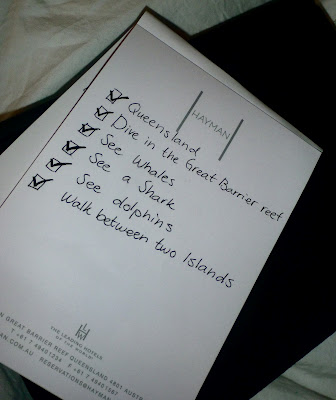 HAYMAN
Queensland
Dive in the Great Barrier reef
See Whales
See a Shark
See dolphins
Walk between two Islands
THE LEADING HOTELS
OF THE WORLD
N GREAT BARRIER REEF QUEENSLAND 4801 AUSTR
T +61 7 49401234 F +61 7 49401567
MAN.COM.AU RESERVATIONS@HAYMAN